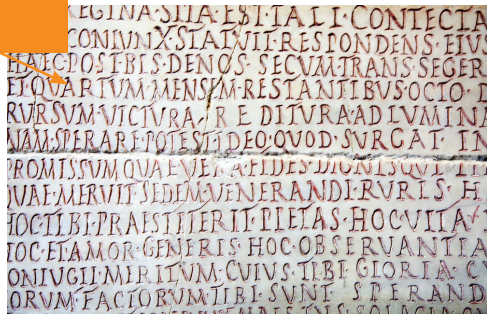 REGINA·SITA·EST·TALI·CONTECTA
CONIVNX·STATVIT·RESPONDENS·EIVS
HAEC·POST·BIS·DENOS·SECVM·TRANSSEGER
ET·QVARTVM·MENSEM·RESTANTIBVS·OCTO·D
RVRSVM·VICTVRA·REDITVRA·AD·LVMINA
NAM·SPERARE·POTEST·IDEO·QVOD·SVRGAT·IN
PROMISSVM·QVAE·VERA·FIDES·DIGNISQVE
QVAE·MERVIT·SEDEM·VENERANDI·RVRIS·H
HOC·TIBI·PRAESTITERIT·PIETAS·HOC·VITA
HOC·ET·AMOR·GENERIS·HOC·OBSERVANTIA
CONIVGII·MERITVM·CVIVS·TIBI·GLORIA·CV
ORVM·FACTORVM·TIBI·SVNT·SPERAND